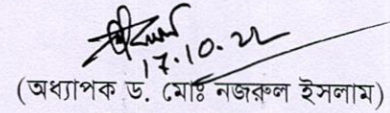 17.10.22
(অধ্যাপক ড. মোঃ নজরুল ইসলাম)